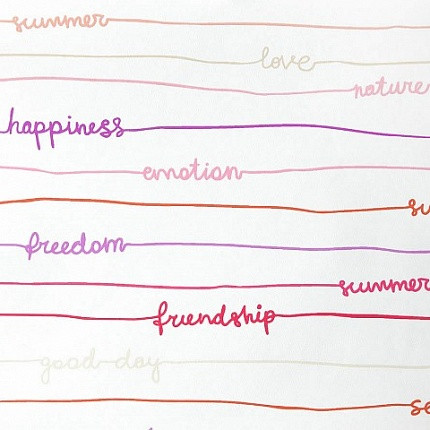 summer
love
nature
happiness
emotion
su
freedom
summer
friendship
good day
se